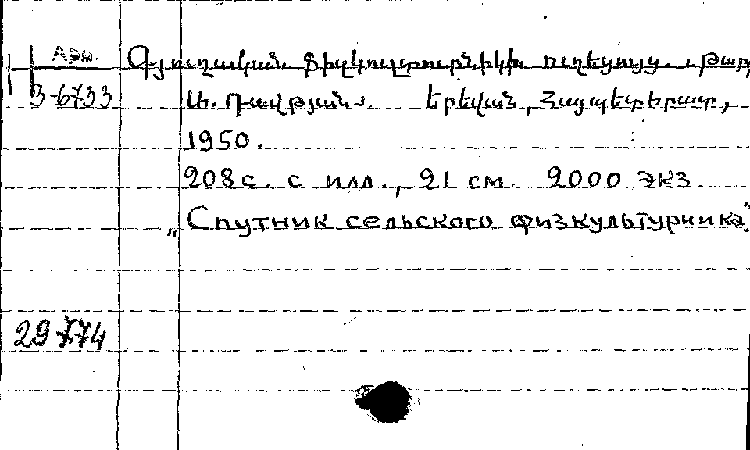 Арм. Գյուղական ֆիզկուլտուրնիկի ուղեցույց. թարգ
3-6733 Ա. Դավթյան. Երևան, Հայպետհրատ,
1950.
208 с. с илл., 21 см. 2000 экз.
„Спутник сельского физкультурника”
29774